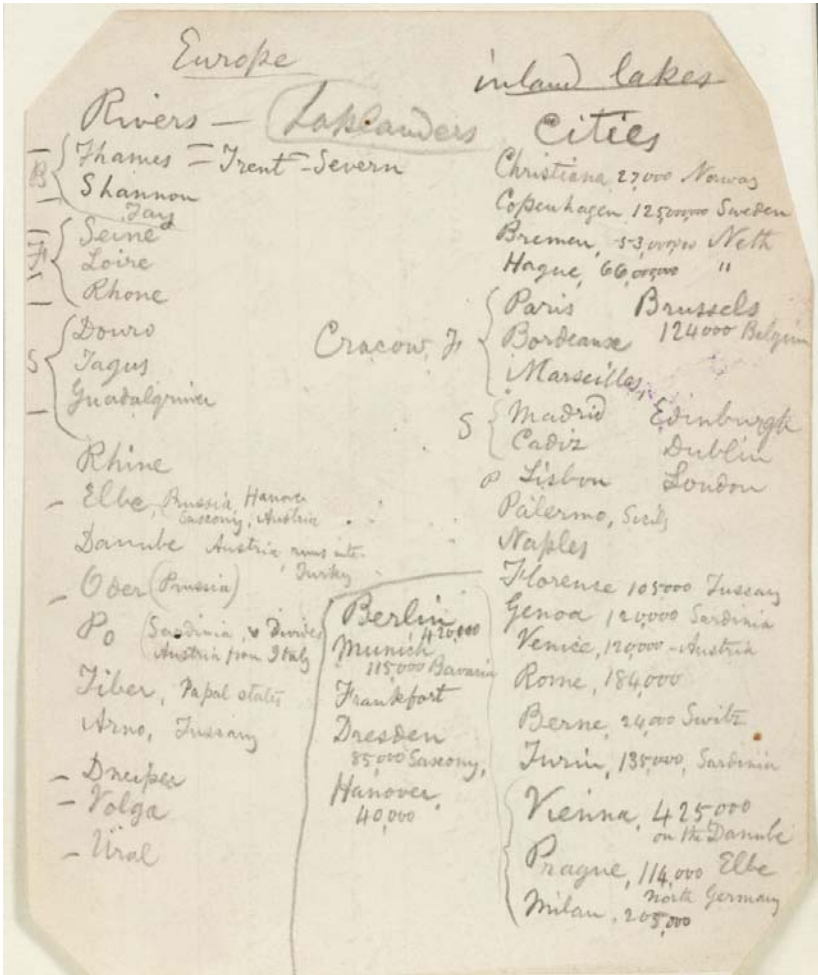 Europe
inland lakes
Rivers — Laplanders
Cities
B
Thames = Trent - Severn
Shannon
Tay
F
Seine
Loire
Rhone
S
Douro
Tagus
Rhine
Elbe, Prussia, Hanover
Saxcony, Austria
Danube Austria runs into
Turkey
Oder (Prussia)
Po (Sardinia, & Divides
Austria from Italy
Tiber, Papal states
Arno, Tuscany
Dneiper
Volga
Ural
Cracow,
Berlin
420,000
Munich
115,000 Bavaria
Frankfort
Dresden
85,000 Saxcony,
Hanover,
40,000
Christiana, 27,000 Norway
Copenhagen, Sweden
Bremen, Neth
Hague, "
F
Paris Brussels
Bordeaux 124000 Belgium
Marseilles,
S
Madrid Edinburgh
Cadiz Dublin
P Lisbon London
Palermo, Sicily
Naples
Florence 105000 Tuscany
Genoa 120,000 Sardinia
Venice, 120,000 - Austria
Rome, 184,000
Berne, 24,000 Switz
Turin, 135,000, Sardinia
Vienna, 425,000
on the Danube
Prague, 114,000 Elbe
North Germany
Milan, 205,000